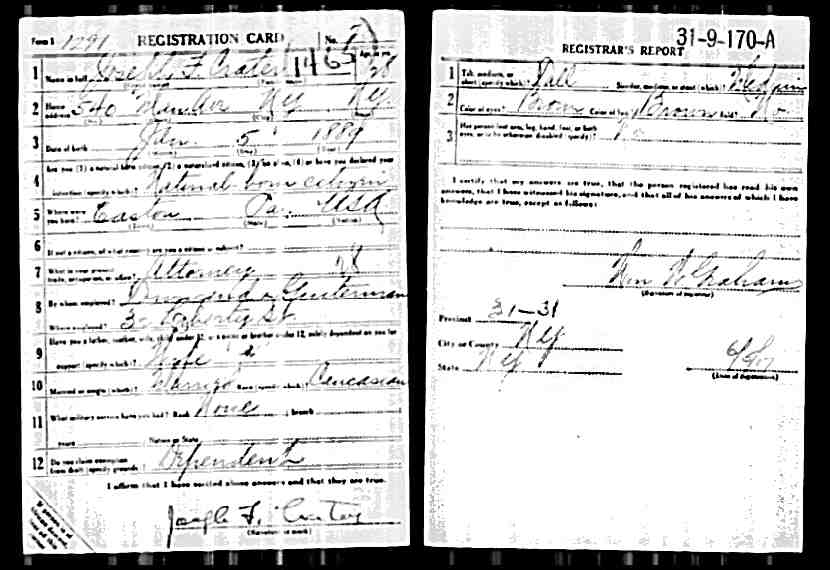 Form 1 1291 REGISTRATION CARD No. 7
1 Name in full Joseph F. Crater 1465 Age in yrs 28
2 Home address 540 Manhattan Ave NY NY
3 Date of birth Jan. 5 1889
Are you (1) a natural born citizen, (2) a naturalized citizen, (3) an alien, (4) or have you declared your
4 intention (specify which)? Natural born citizen
5 Where were you born? Easton Pa. USA
(Town) (State) (Nation)
6 If not a citizen, of what country are you a citizen or subject?
7 What is your present trade, occupation, or office? Attorney 28
8 By whom employed?
Where employed? Liberty St.
Have you a father, mother, wife, child under 12, or a sister or brother under 12, solely dependent on you for
9 support (specify which)? Wife
10 Married or single (which)? Married Race (specify which)? Caucasian
11 What military service have you had? Rank None ; branch
years ; Nation or State
12 Do you claim exemption from draft (specify grounds)? Dependent
I affirm that I have verified above answers and that they are true.
Joseph F. Crater
(Signature or mark)
31-9-170-A
REGISTRAR'S REPORT
1 Tall, medium, or short (specify which)? Tall Slender, medium, or stout (which)? Medium
2 Color of eyes? Brown Color of hair? Brown Bald? No
3 Has person lost arm, leg, hand, foot, or both eyes, or is he otherwise disabled (specify)? No
I certify that my answers are true, that the person registered has read his own
answers, that I have witnessed his signature, and that all of his answers of which I have
knowledge are true, except as follows:
Wm W Graham
(Signature of registrar)
Precinct 31-31
City or County NY
State NY
(Date of registration)